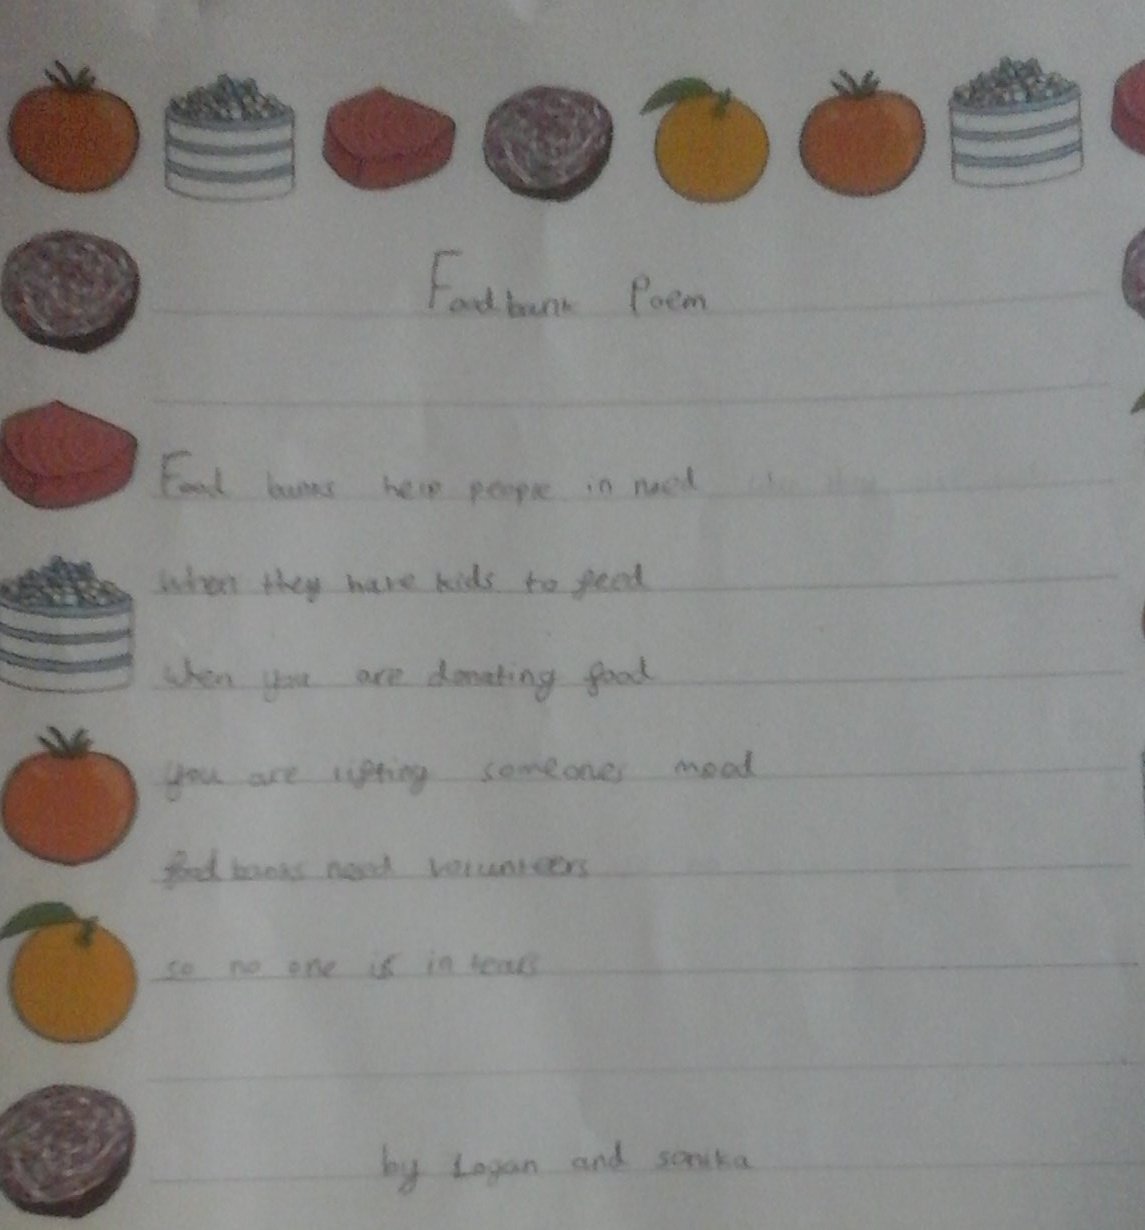 Foodbank Poem
Food banks help people in need
When they have kids to feed
When you are donating food
you are lifting someones mood
food banks need volunteers
so no one is in tears
by Logan and sonika